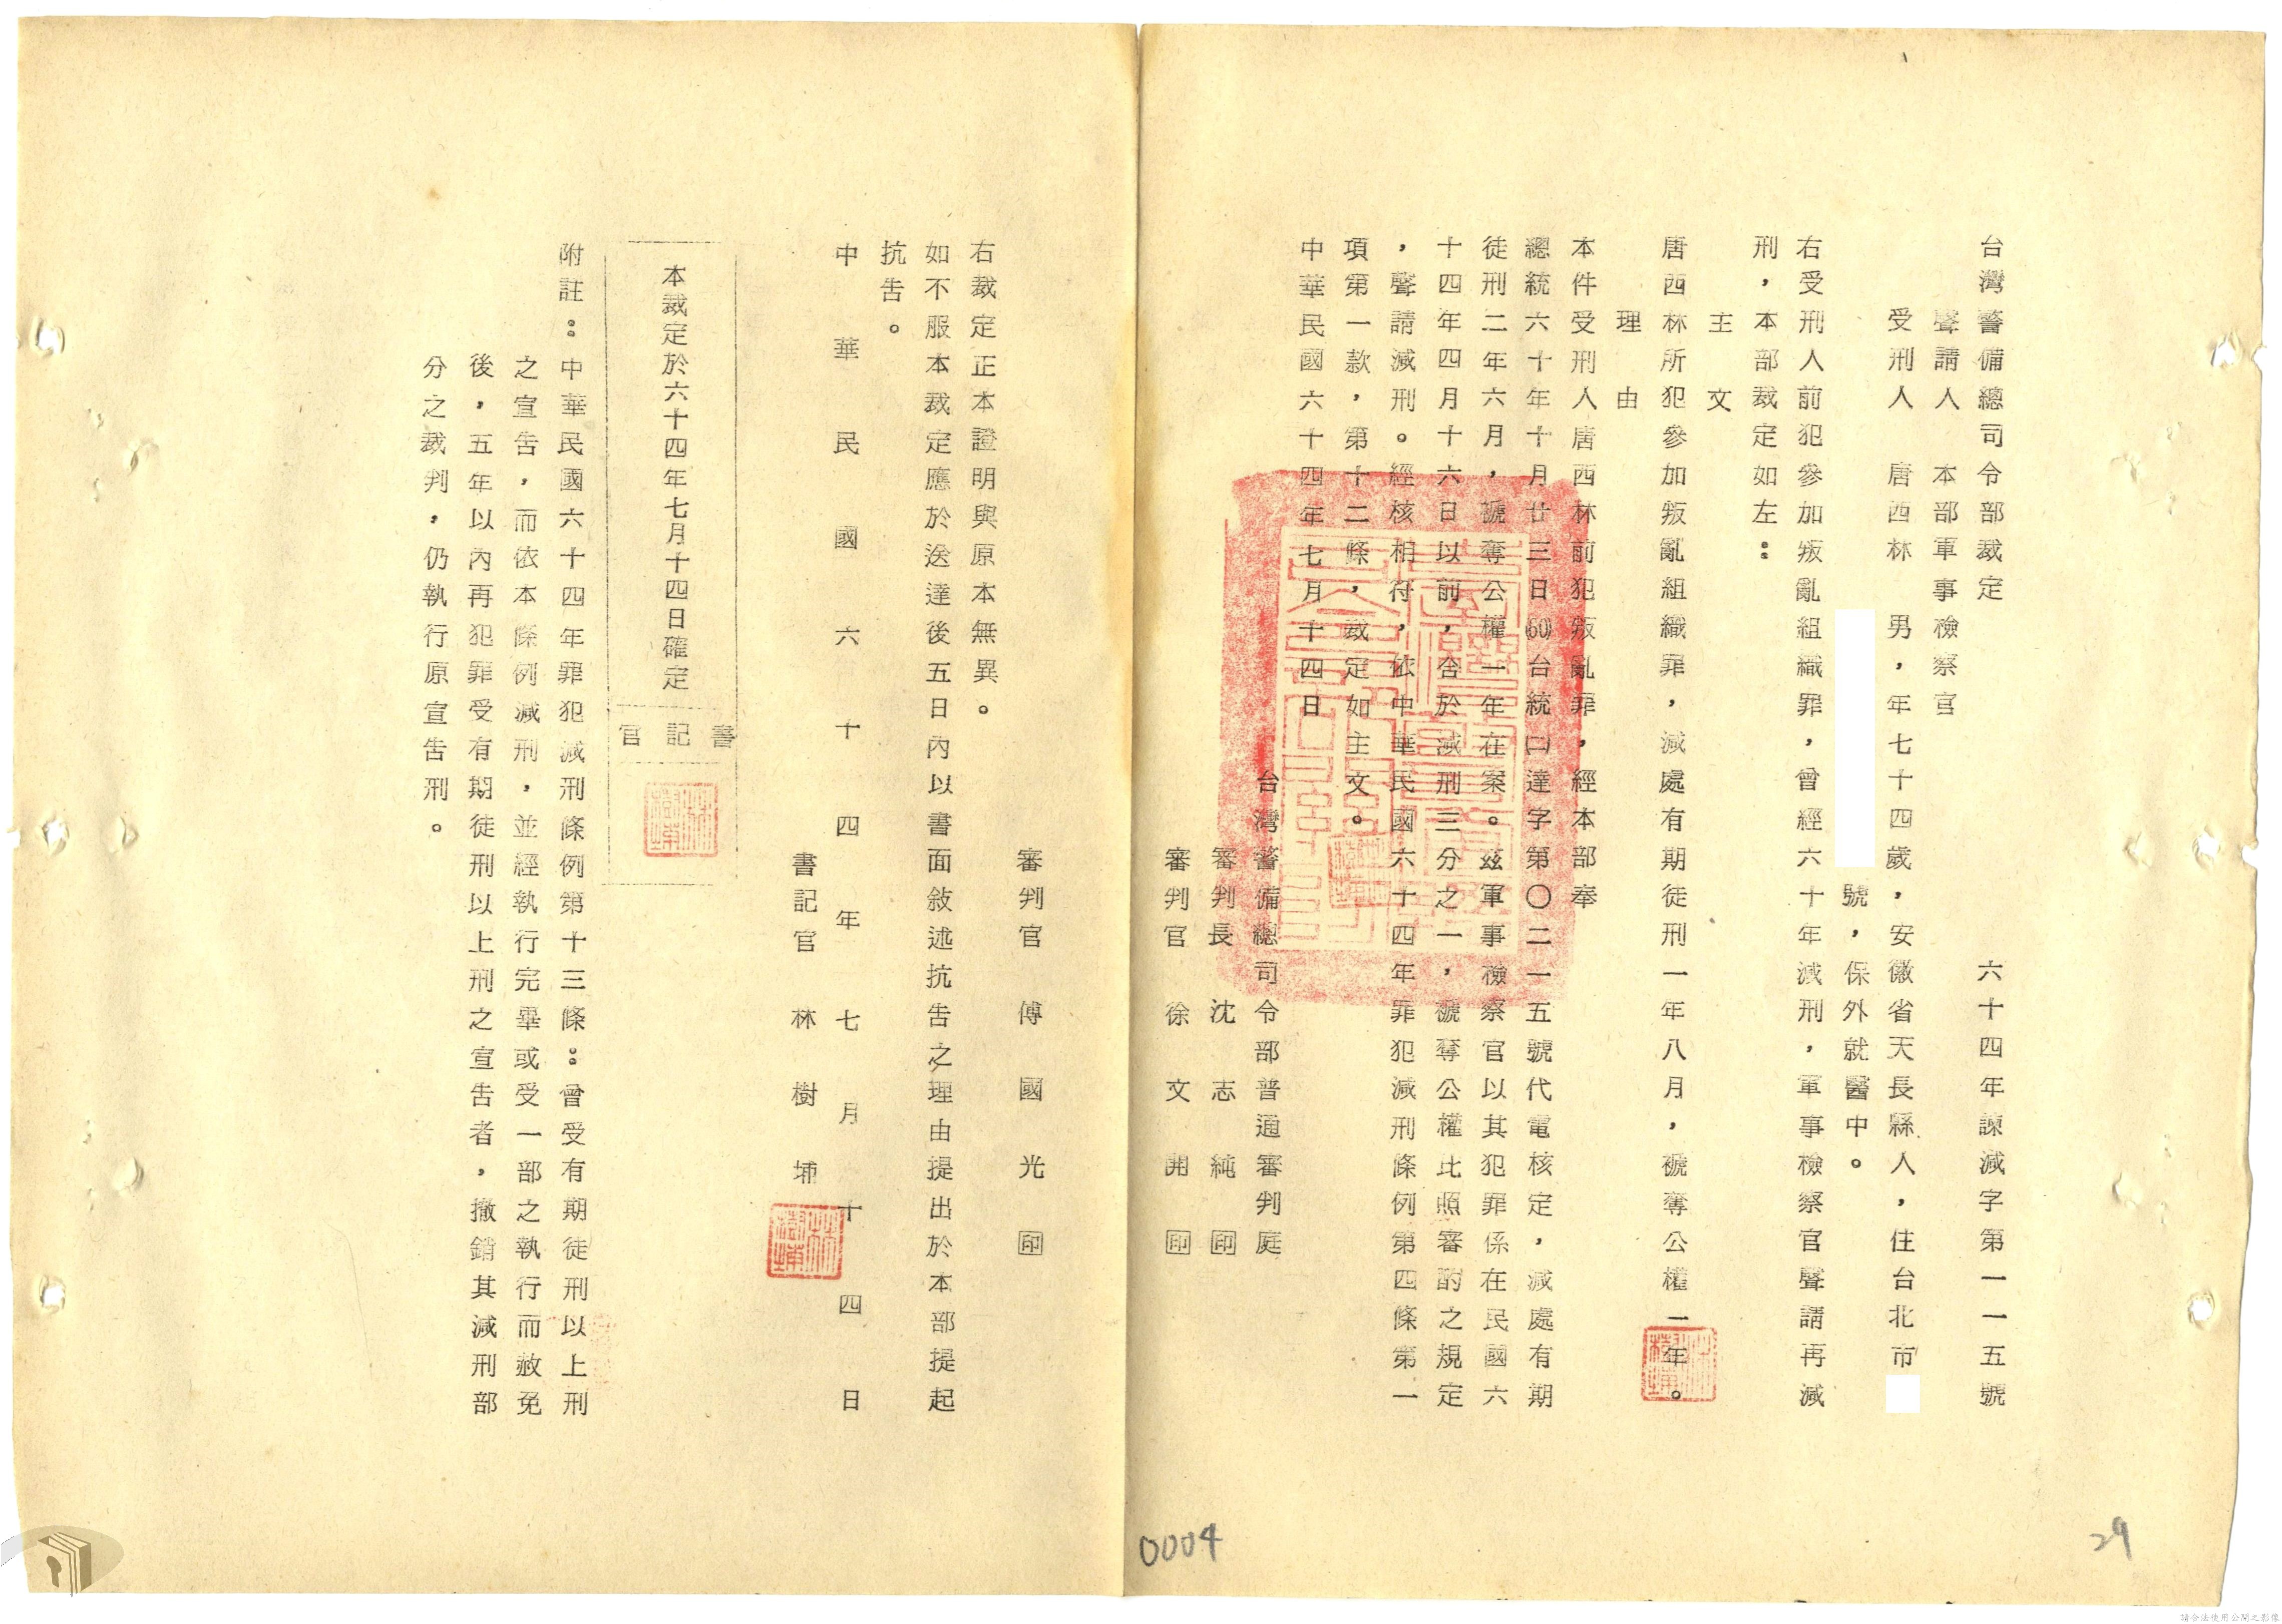 台灣警備總司令部裁定　六十四年諫減字第一一五號
聲請人　本部軍事檢察官
受刑人　唐西林　男，年七十四歲，安徽省天長縣人，住台北市
號，保外就醫中。
右受刑人前犯參加叛亂組織罪，曾經六十年減刑，軍事檢察官聲請再減
刑，本部裁定如左：
主文
唐西林所犯參加叛亂組織罪，減處有期徒刑一年八月，褫奪公權一年。
理由
本件受刑人唐西林前犯叛亂罪，經本部奉
總統六十年十月廿三日(60)台統㈡達字第〇二一五號代電核定，減處有期
徒刑二年六月，褫奪公權一年在案。茲軍事檢察官以其犯罪係在民國六
十四年四月十六日以前，合於減刑三分之一，褫奪公權比照審酌之規定
，聲請減刑。經核相符，依中華民國六十四年罪犯減刑條例第四條第一
項第一款，第十二條，裁定如主文。
中華民國六十四年七月十四日
台灣警備總司令部普通審判庭
審判長　沈志純　印
審判官　徐文開　印
審判官　傅國光　印
右裁定正本證明與原本無異。
如不服本裁定應於送達後五日內以書面敘述抗告之理由提出於本部提起
抗告。
中華民國六十四年七月十四日
書記官　林樹埔
林樹埔
本裁定於六十四年七月十四日確定
書記官
林樹埔
附註：中華民國六十四年罪犯減刑條例第十三條：曾受有期徒刑以上刑
之宣告，而依本條例減刑，並經執行完畢或受一部之執行而赦免
後，五年以內再犯罪受有期徒刑以上刑之宣告者，撤銷其減刑部
分之裁判，仍執行原宣告刑。
0004
29
請合法使用公開之影像